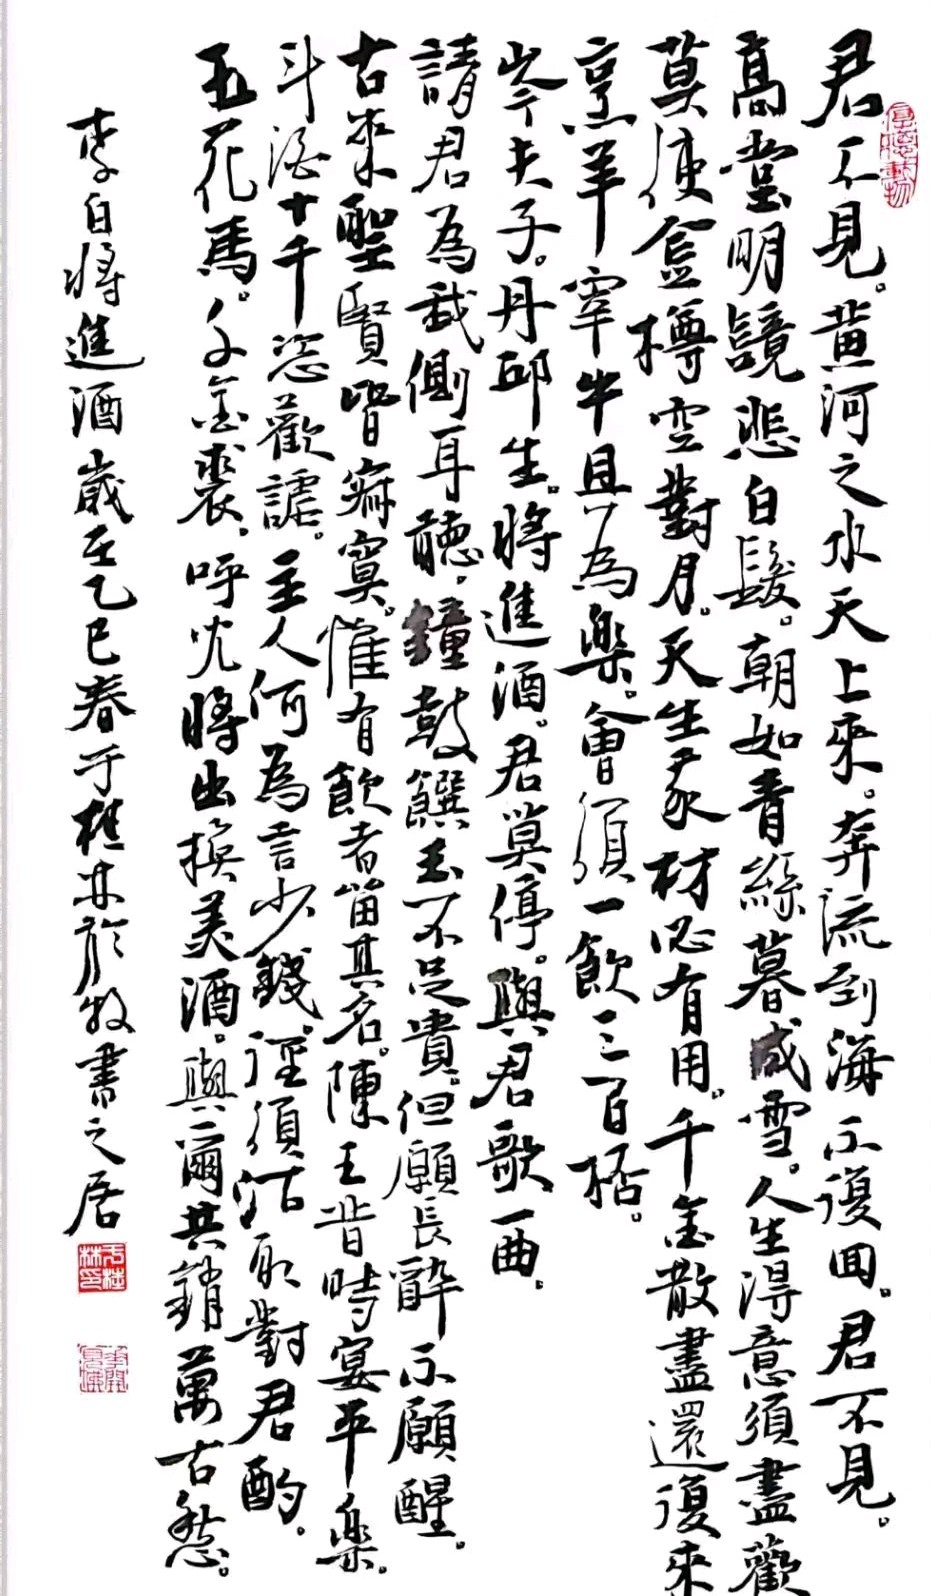 君不見。黃河之水天上來。奔流到海不復回。君不見。
高堂明鏡悲白髮。朝如青絲暮成雪。人生得意須盡歡
莫使金樽空對月。天生我材必有用。千金散盡還復來
烹羊宰牛且為樂。會須一飲三百杯。
岑夫子。丹邱生。將進酒。君莫停。與君歌一曲。
請君為我側耳聽。鐘鼓饌玉不足貴。但願長醉不願醒。
古來聖賢皆寂寞。惟有飲者留其名。陳王昔時宴平樂。
斗酒十千恣歡謔。主人何為言少錢。徑須沽取對君酌。
五花馬。千金裘。呼兒將出換美酒。與爾共銷萬古愁。
李白將進酒歲在乙巳春于桂林於牧書之居